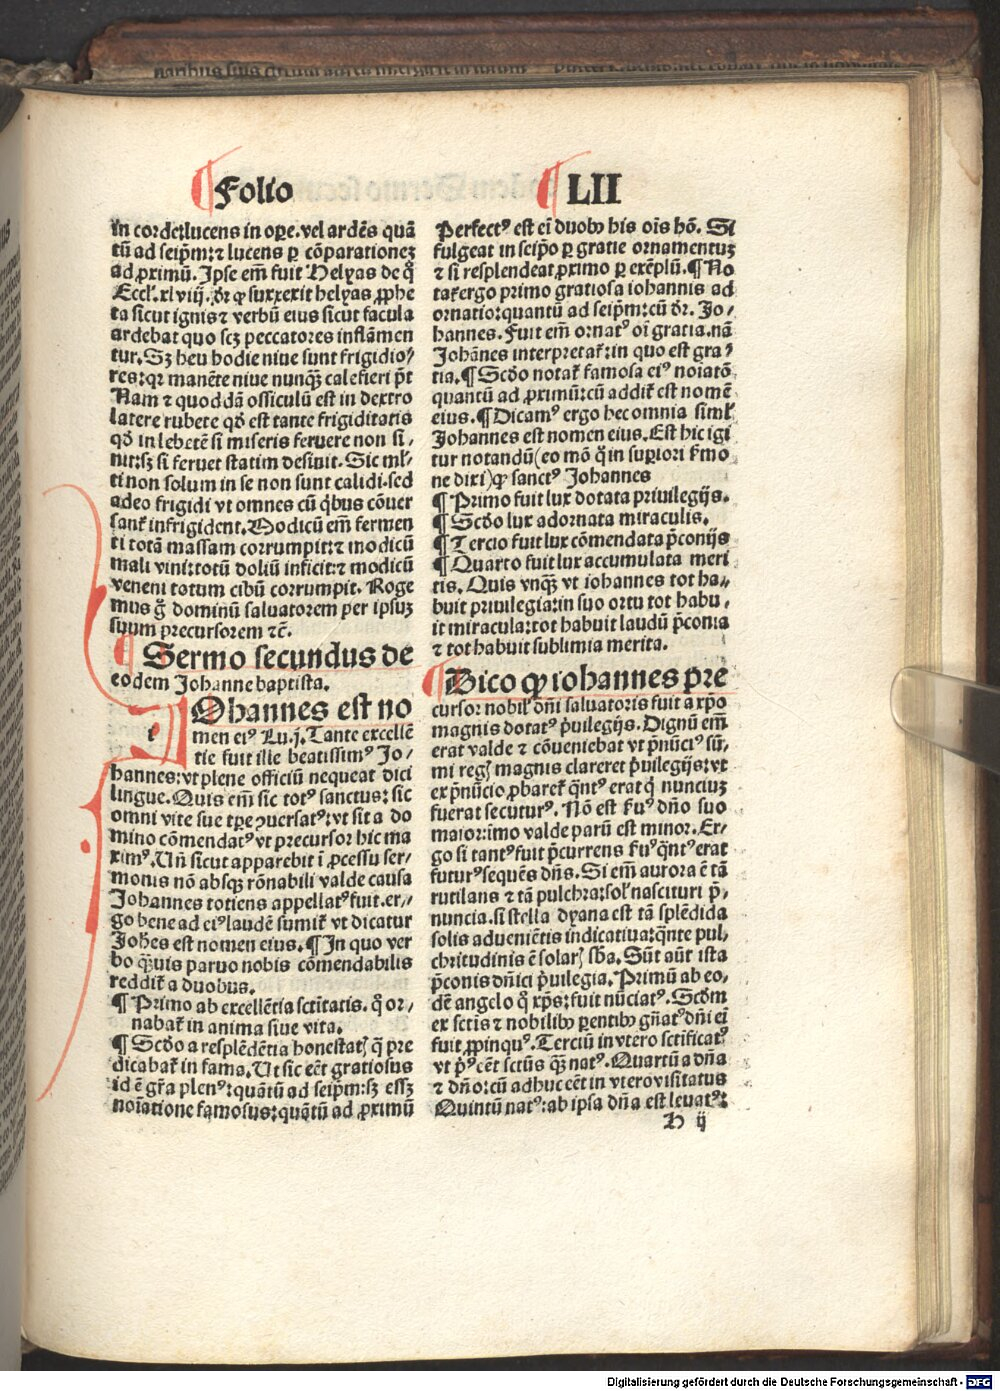 ¶ Folio ¶ LII
in corde: lucens in oꝑe. vel ardēs quā
tū ad seip̄m: ⁊ lucens ꝑ cōparationeꝫ
ad ꝓximū. Ipse em̄ fuit Helyas de q̄
Eccl'. xlviij. dr̄ ꝙ surrexit helyas ꝓphe
ta sicut ignis ⁊ verbū eius sicut facula
ardebat quo scꝫ peccatores inflāmen
tur. Sꝫ heu hodie niue sunt frigidio⸗
res: qꝛ manēte niue nunqꝫ calefieri p̄t
Nam ⁊ quoddā ossiculū est in dextro
latere rubete qd̄ est tante frigiditatis
qd̄ in lebetē si miseris feruere non si⸗
nit: sꝫ si feruet statim desinit. Sic ml̄⸗
ti non solum in se non sunt calidi. sed
adeo frigidi vt omnes cū qͥbus cōuer
sant̄ infrigident. Modicū em̄ fermen
ti totā massam corrumpit: ⁊ modicū
mali vini: totū doliū inficit: ⁊ modicū
veneni totum cibū corrumpit. Roge
mus g̊ dominū saluatorem per ipsuꝫ
suum precursorem ⁊c̄.
¶ Sermo secundus de
eodem Johanne baptista.
IOhannes est no
men eiꝰ Lu. j. Tante excellē
tie fuit ille beatissimꝰ Jo⸗
hannes: vt plene officiū nequeat dici
lingue. Quis em̄ sic totꝰ sanctus: sic
omni vite sue tꝑe ꝯuersatꝰ: vt sit a do
mino cōmendatꝰ vt precursor hic ma
ximꝰ. Un̄ sicut apparebit ī ꝓcessu ser⸗
monis nō absqꝫ rōnabili valde causa
Johannes totiens appellatꝰ fuit. er⸗
go bene ad eiꝰ laudē sumit̄ vt dicatur
Joh̄es est nomen eius. ¶ In quo ver
bo qͣuis paruo nobis cōmendabilis
reddit̄ a duobus.
¶ Primo ab excellētia sctītatis. q̄ or⸗
nabat̄ in anima siue vita.
¶ Scd̄o a resplēdētia honestatꝭ q̄ pre
dicabat̄ in fama. Ut sic eēt gratiosus
id ē gr̄a plenꝰ: quātū ad seip̄m: sꝫ essꝫ
noīatione famosus: quātū ad ꝓximū
Perfectꝰ est eī duobꝰ his oīs hō. Si
fulgeat in seip̄o ꝑ gratie ornamentuꝫ
⁊ si resplendeat ꝓximo ꝑ exēplū. ¶ No
tat̄ ergo primo gratiosa iohannis ad
ornatio: quantū ad seip̄m: cū dr̄. Jo⸗
hannes. Fuit em̄ ornatꝰ oī gratia. nā
Johānes interpretat̄: in quo est gra⸗
tia. ¶ Scd̄o notat̄ famosa eiꝰ noīatō
quantū ad ꝓximū: cū addit̄ est nomē
eius. ¶ Dicamꝰ ergo hec omnia siml̄
Johannes est nomen eius. Est hic igi
tur notandū (eo mō q̄ in suꝑiori f̄mo
ne dixi) ꝙ sanctꝰ Johannes
¶ Primo fuit lux dotata priuilegijs.
¶ Scd̄o lux adornata miraculis.
¶ Tercio fuit lux cōmendata p̄conijs
¶ Quarto fuit lux accumulata meri
tis. Quis vnqꝫ vt iohannes tot ha⸗
buit priuilegia: in suo ortu tot habu⸗
it miracula: tot habuit laudū p̄conia
⁊ tot habuit sublimia merita.
¶ Dico ꝙ iohannes pre
cursor nobil' dn̄i saluatoris fuit a xp̄o
magnis dotatꝰ p̄uilegijs. Dignū em̄
erat valde ⁊ cōueniebat vt p̄nūciꝰ sūm̄
mi regꝭ magnis clareret p̄uilegijs: vt
ex p̄nūcio ꝓbaret̄ qͣntꝰ erat q̄ nunciuꝫ
fuerat secuturꝰ. Nō est f̄uꝰ dn̄o suo
maior: imo valde parū est minor. Er⸗
go si tantꝰ fuit p̄currens f̄uꝰ qͣntꝰ erat
futurꝰ sequēs dn̄s. Si em̄ aurora ē tā
rutilans ⁊ tā pulchra: sol' nascituri p̄⸗
nuncia. si stella dyana est tā splēdida
solis aduenietis indicatiua: qͣnte pul⸗
chritudinis ē solarꝭ sb̄a. Sūt aūt ista
p̄conis dn̄ici p̄uilegia. Primū ab eo⸗
dē angelo q̊ xp̄s: fuit nūciatꝰ. Scd̄m
ex sctīs ⁊ nobilibꝰ ꝑentibꝰ gn̄atꝰ dn̄i eī
fuit ꝓpinquꝰ. Terciū in vtero sctīficatꝰ
vt p̄ꝰ eēt sctūs qͣꝫ natꝰ. Quartū a dn̄a
⁊ dn̄o: cū adhuc eēt in vtero visitatus
Quintū natꝰ: ab ipsa dn̄a est leuatꝰ:
H ij
Digitalisierung gefördert durch die Deutsche Forschungsgemeinschaft - DFG